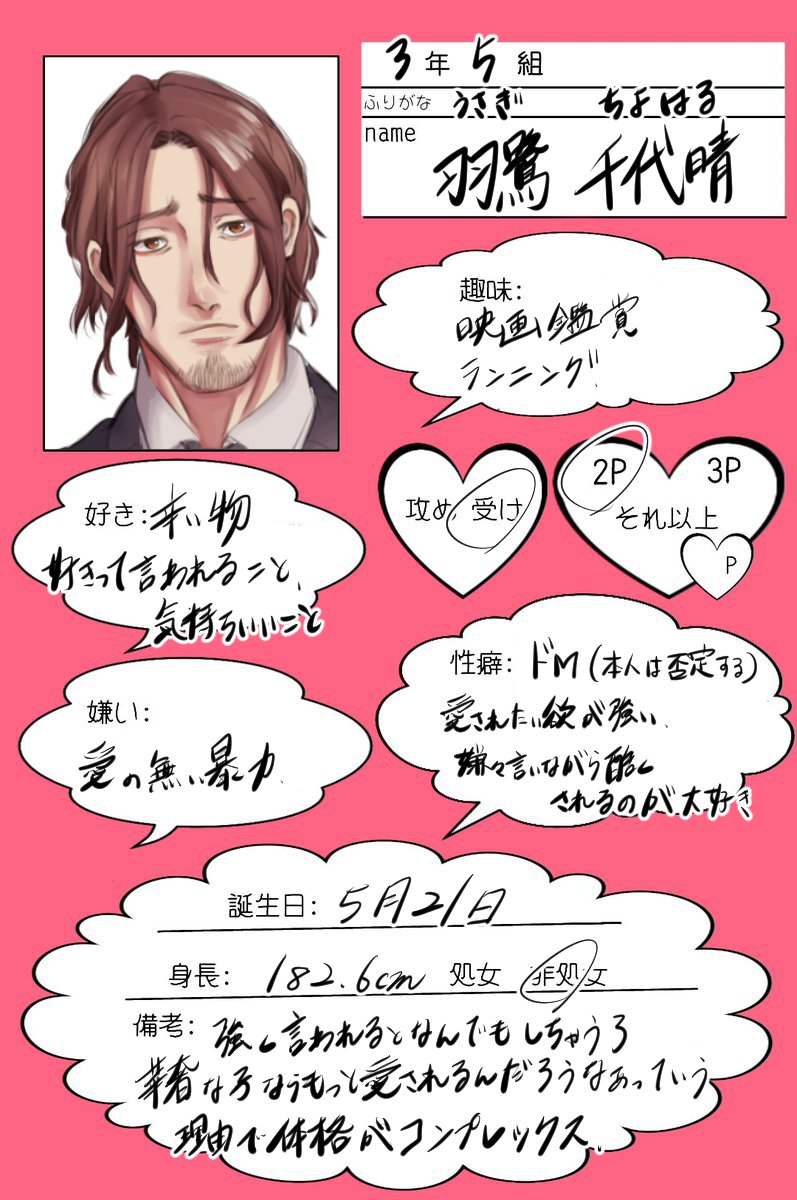 3年5組
ふりがな うさぎ ちよはる
name
羽鷺 千代晴
趣味:
映画鑑賞
ランニング
攻め 受け
2P 3P
それ以上
P
好き:辛い物
好きって言われること、
気持ちいいこと
性癖:ドM(本人は否定する)
愛されたい欲が強い、
嫌々言いながら酷く
されるのが大好き
嫌い:
愛の無い暴力、
誕生日:5月21日
身長:182.6cm 処女 非処女
備考:強く言われるとなんでもしちゃうろ
華奢な子ならもっと愛されるんだろうなあっていう
理由で体格がコンプレックス、